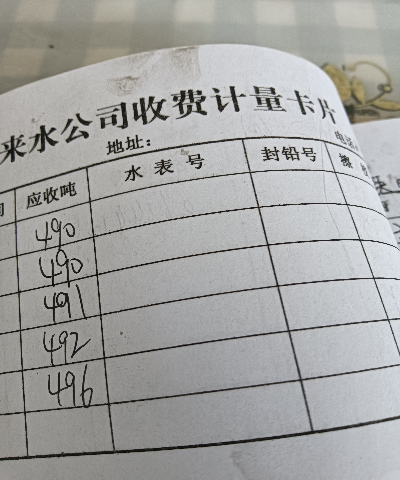 来水公司收费计量卡片
地址:
应收吨 水表号 封铅号
490
490
491
492
496